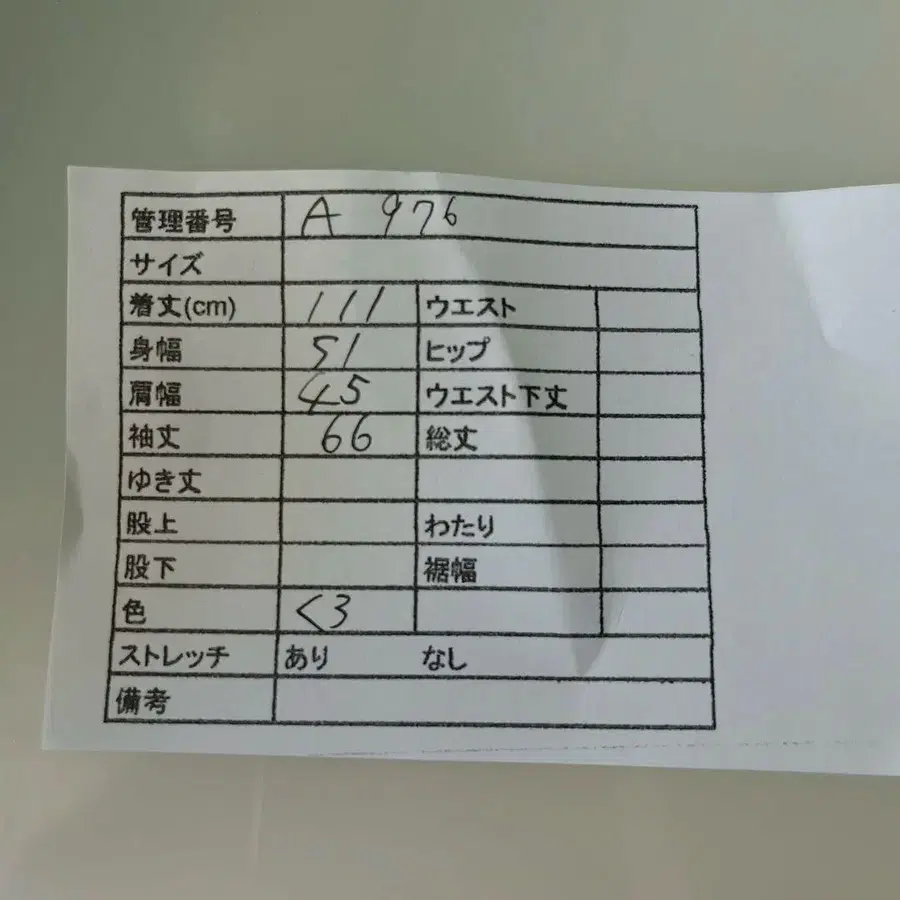 管理番号 A 976
サイズ
着丈(cm) 111 ウエスト
身幅 51 ヒップ
肩幅 45 ウエスト下丈
袖丈 66 総丈
ゆき丈
股上 わたり
股下 裾幅
色 くろ
ストレッチ あり なし
備考